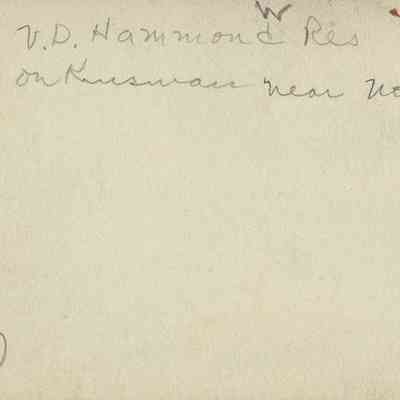 W
V.D. Hammond Res
on Kinsman near No